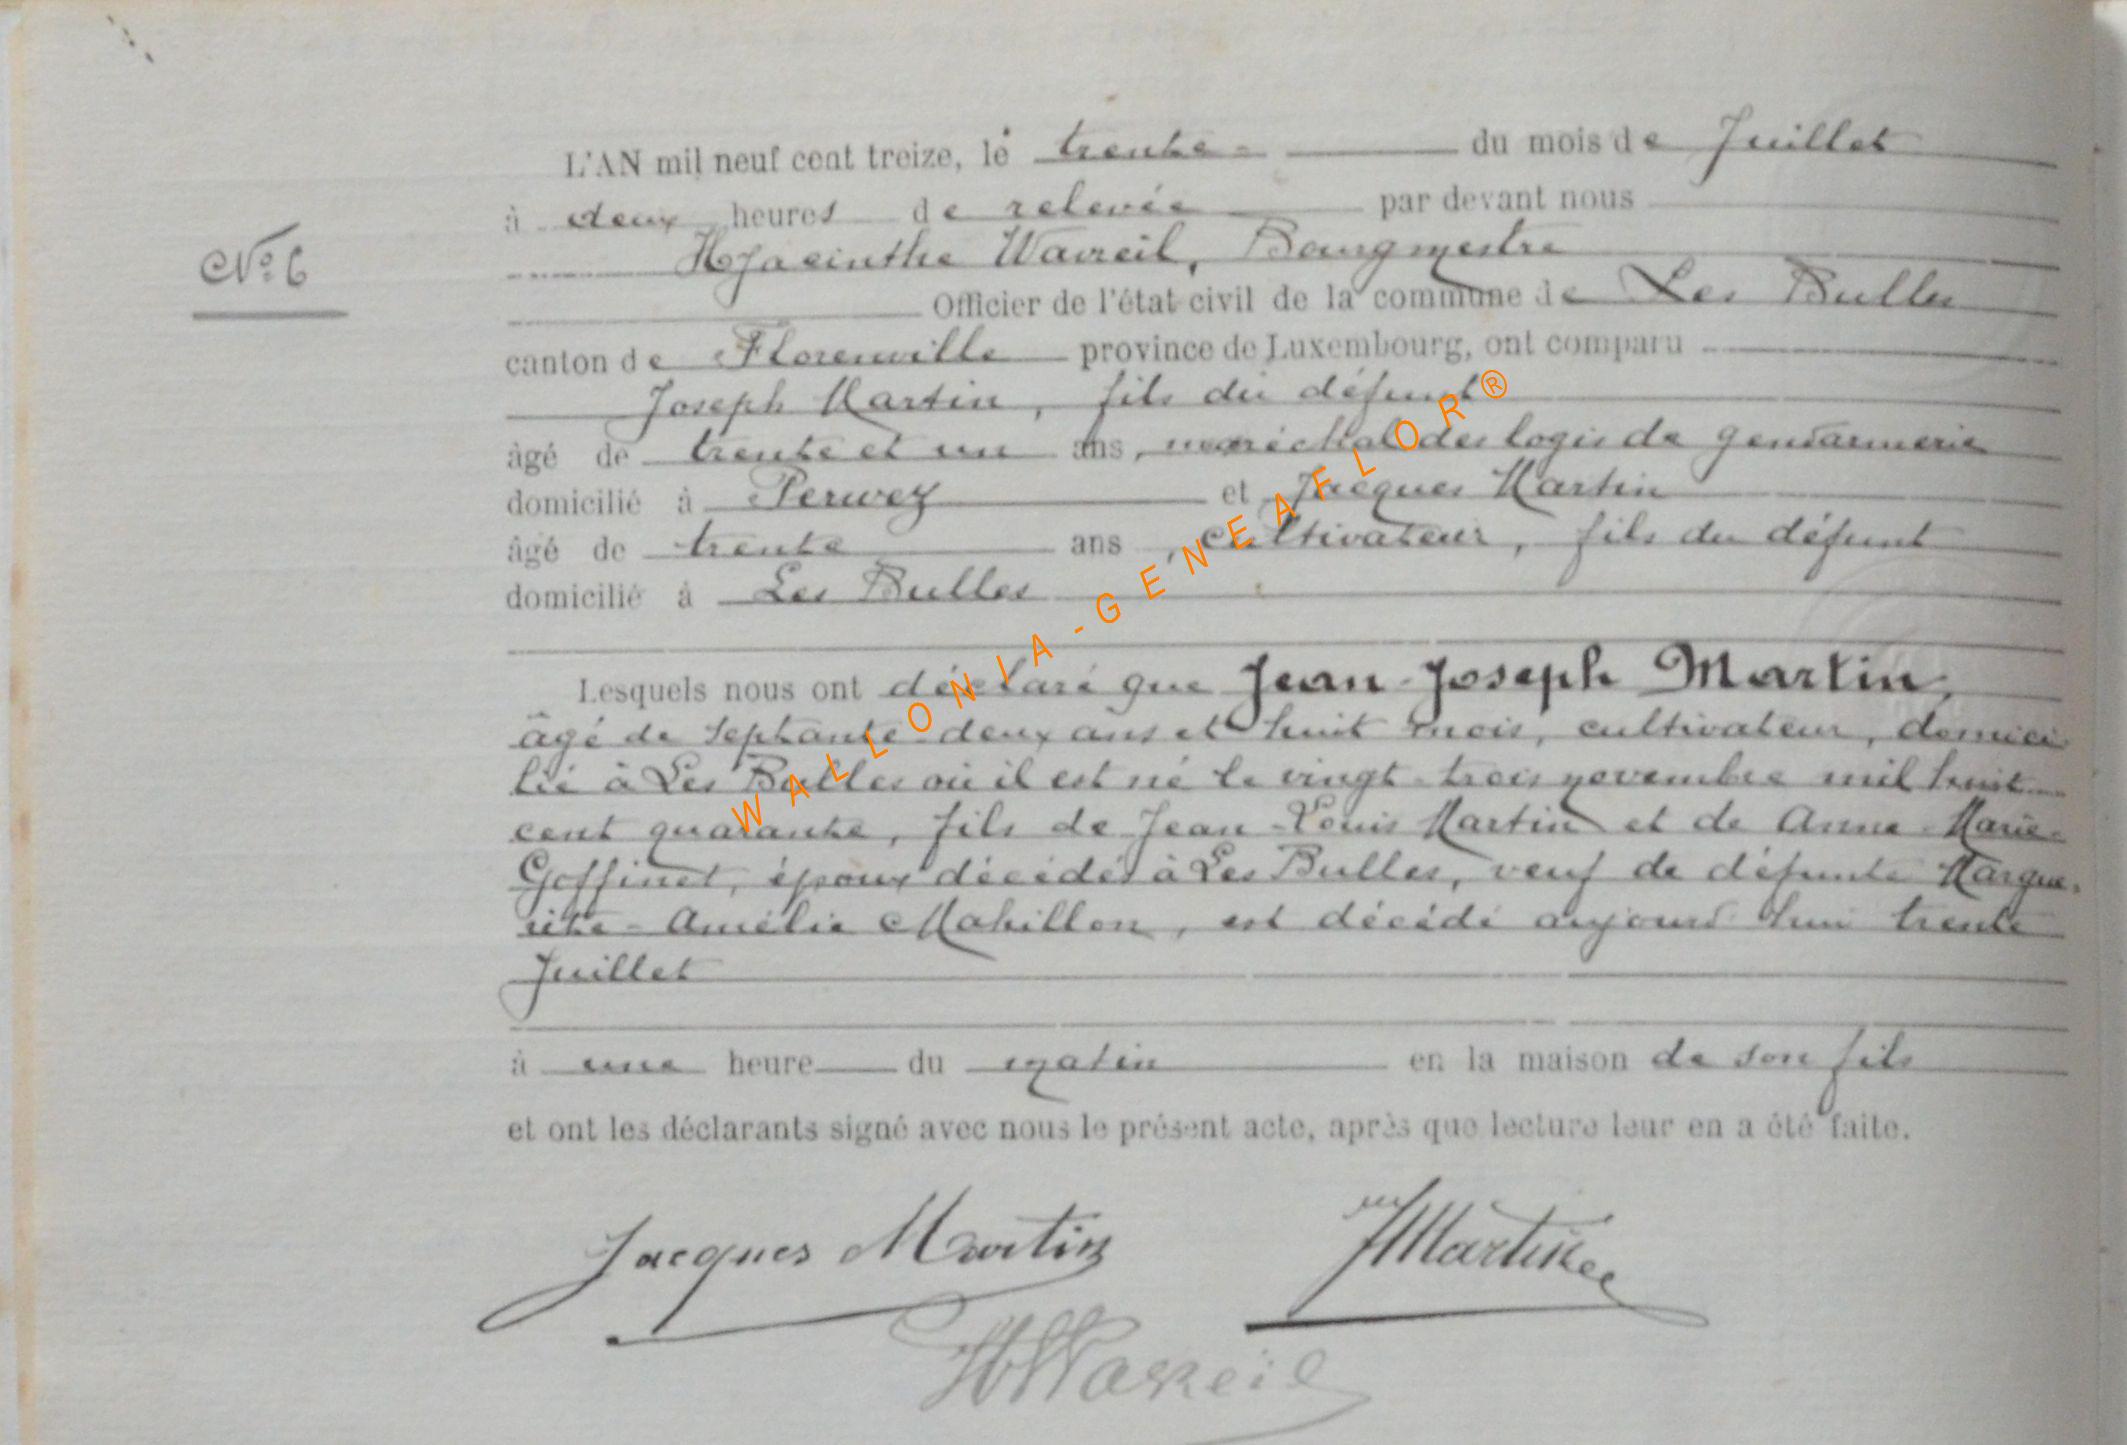 L'AN mil neuf cent treize, le trente du mois de Juillet
à deux heures de relevée par devant nous
N° 6
Hyacinthe Wavreil, Bourgmestre
Officier de l'état civil de la commune de Les Bulles
canton de Florenville province de Luxembourg, ont comparu
Joseph Martin, fils du défunt
âgé de trente et un ans, maréchal des logis de gendarmerie
domicilié à Perwez et Jacques Martin
âgé de trente ans, cultivateur, fils du défunt
domicilié à Les Bulles
Lesquels nous ont déclaré que Jean-Joseph Martin,
âgé de septante-deux ans et huit mois, cultivateur, domici
lié à Les Bulles où il est né le vingt-trois novembre mil huit
cent quarante, fils de Jean-Louis Martin et de Anne-Marie
Goffinet, époux décédés à Les Bulles, veuf de défunte Margue-
rite-Amélie Mahillon, est décédé aujourd'hui trente
Juillet
à une heure du matin en la maison de son fils
et ont les déclarants signé avec nous le présent acte, après que lecture leur en a été faite.
Jacques Martin JMartin
HWavreil
WALLONIA-GENEAFLOR®